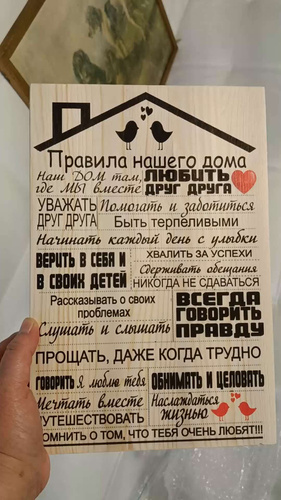 Правила нашего дома
Наш ДОМ там, ЛЮБИТЬ
где МЫ вместе ДРУГ ДРУГА
УВАЖАТЬ Помогать и заботиться
ДРУГ ДРУГА Быть терпеливыми
Начинать каждый день с улыбки
ВЕРИТЬ В СЕБЯ И ХВАЛИТЬ ЗА УСПЕХИ
В СВОИХ ДЕТЕЙ Сдерживать обещания
НИКОГДА НЕ СДАВАТЬСЯ
Рассказывать о своих проблемах ВСЕГДА
Слушать и слышать ГОВОРИТЬ
ПРАВДУ
ПРОЩАТЬ, ДАЖЕ КОГДА ТРУДНО
ГОВОРИТЬ Я люблю тебя ОБНИМАТЬ И ЦЕЛОВАТЬ
Мечтать вместе Наслаждаться
ПУТЕШЕСТВОВАТЬ жизнью
ПОМНИТЬ О ТОМ, ЧТО ТЕБЯ ОЧЕНЬ ЛЮБЯТ!!!